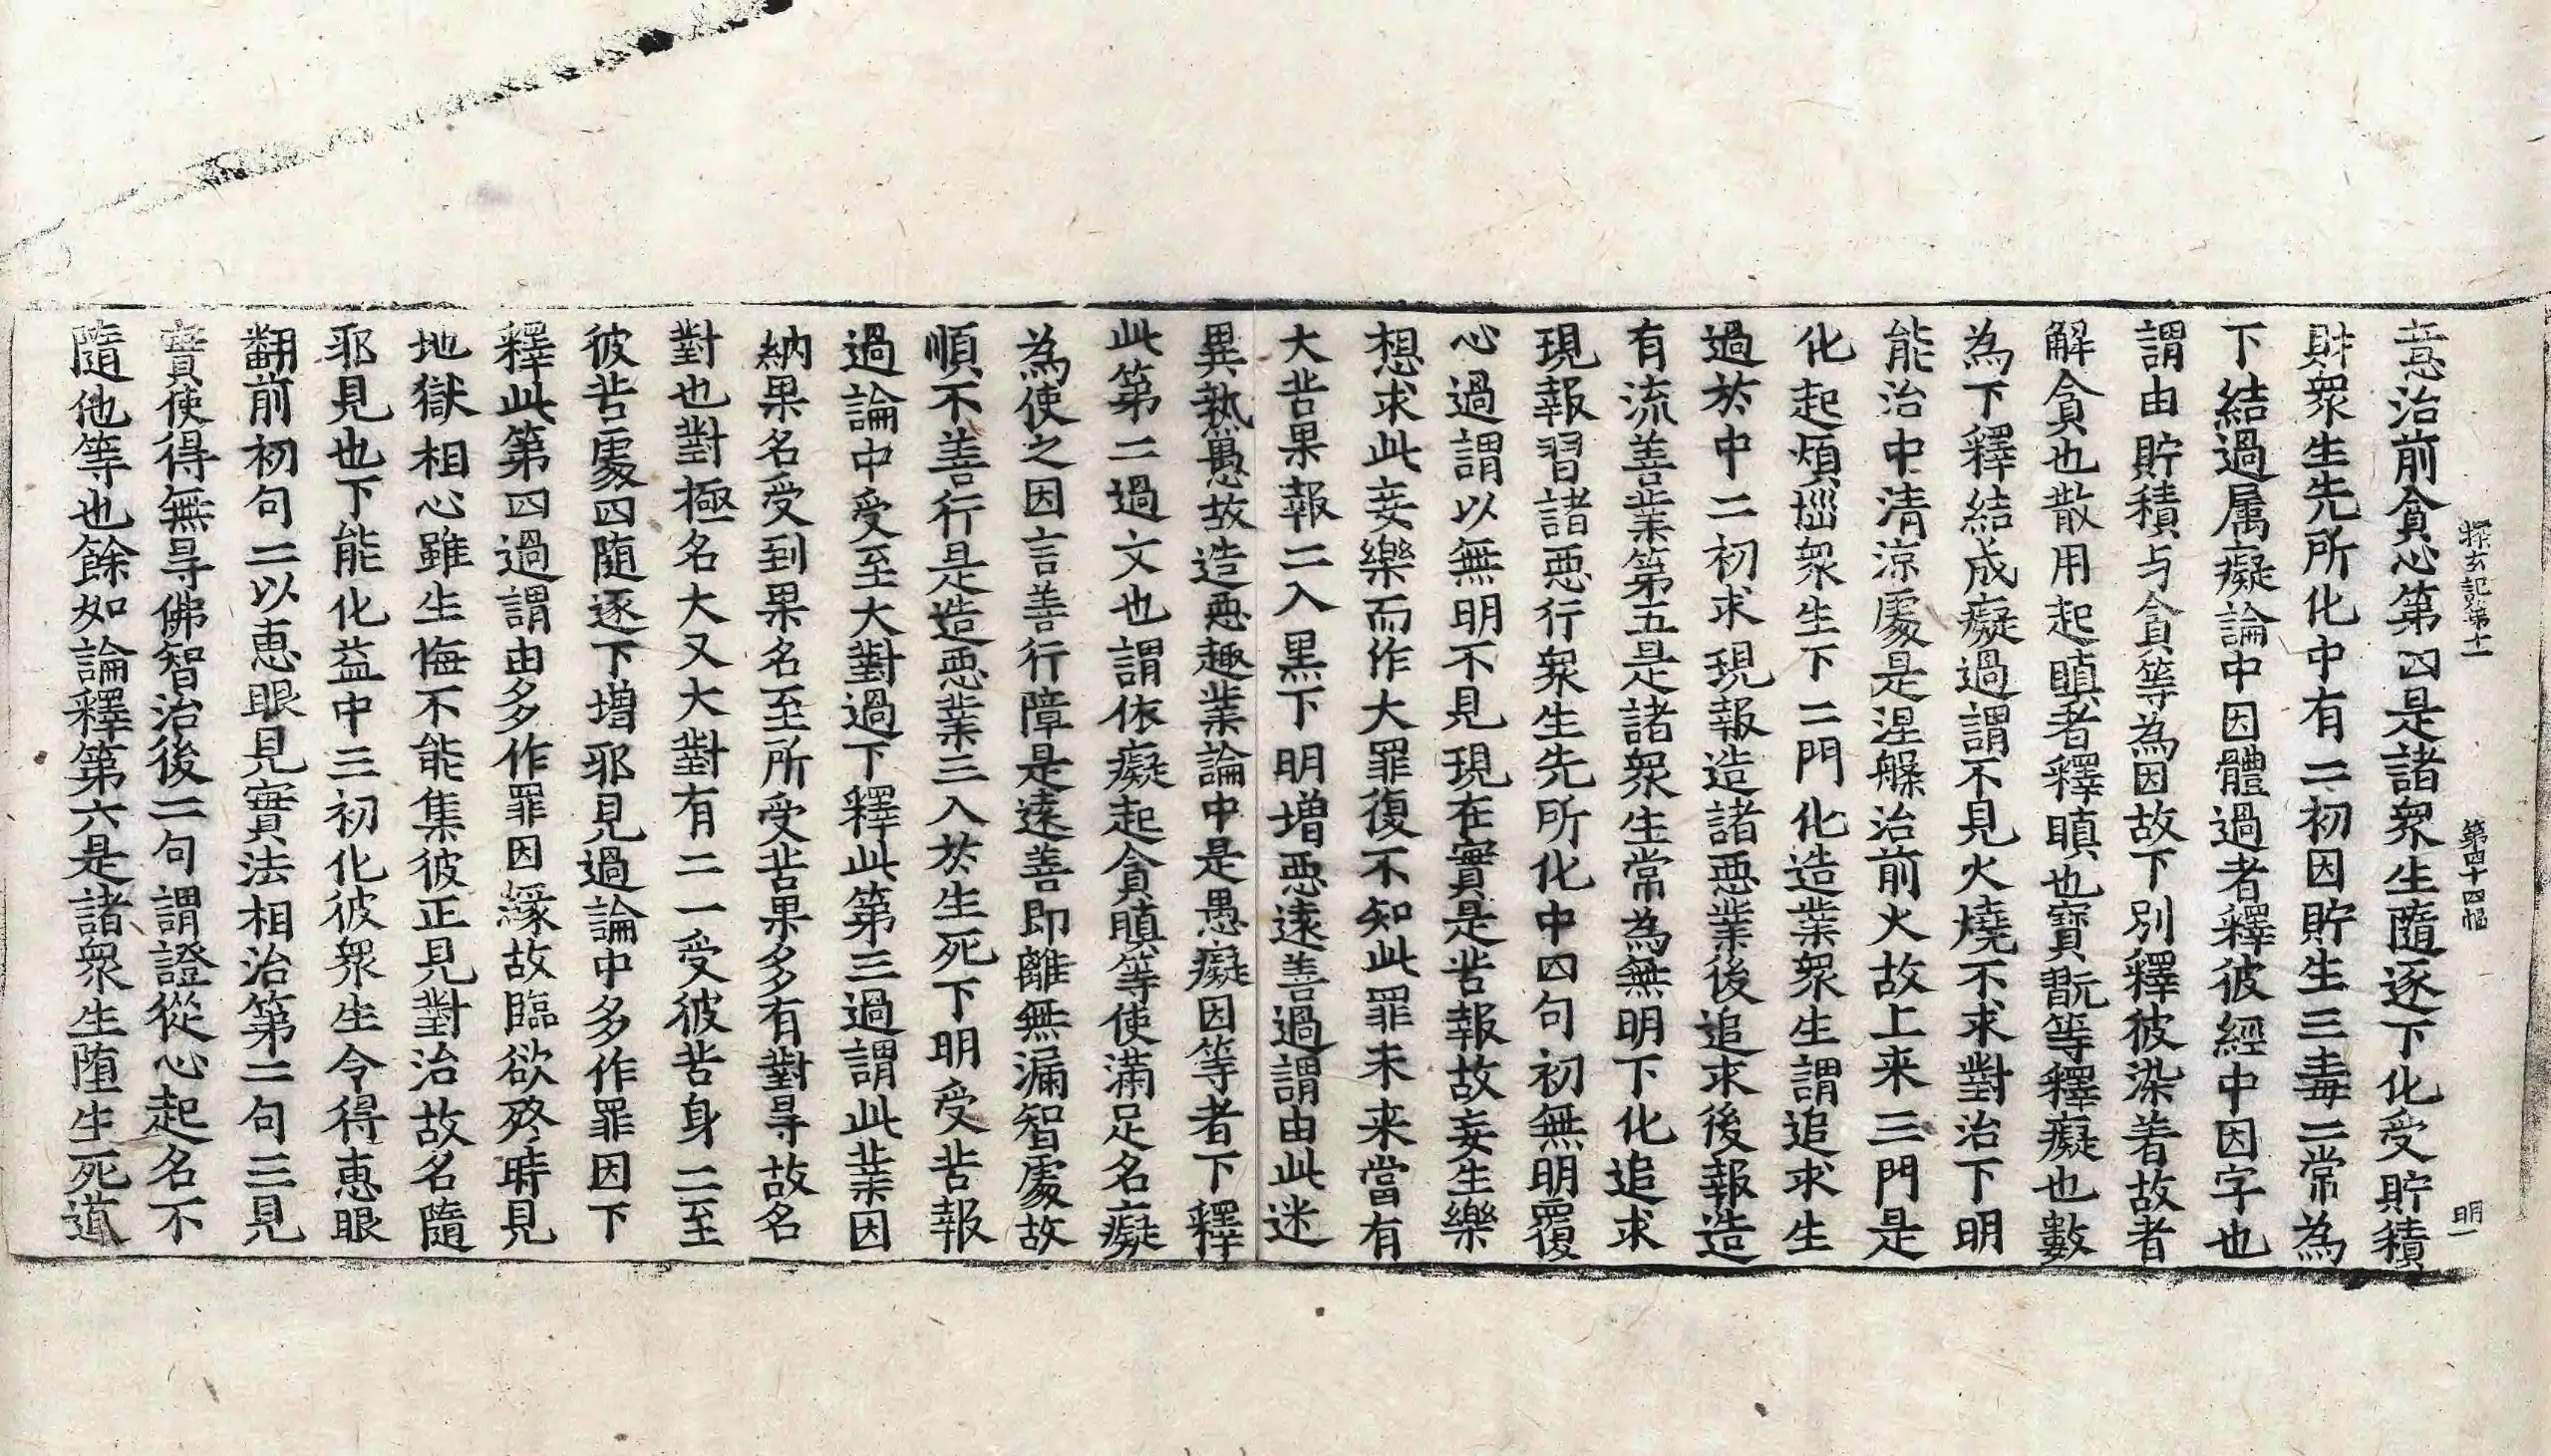 探玄記第十一 第四十四幅 明一
意治前貪心第四是諸衆生隨逐下化受貯積
財衆生先所化中有二初因貯生三毒二常為
下結過属癡論中因體過者釋彼經中因字也
謂由貯積与貪等為因故下別釋彼染著故者
解貪也散用起瞋者釋瞋也寶翫等釋癡也數
為下釋結成癡過謂不見火燒不求對治下明
能治中清涼處是涅槃治前火故上来三門是
化起煩惱衆生下二門化造業衆生謂追求生
過於中二初求現報造諸惡業後追求後報造
有流善業第五是諸衆生常為無明下化追求
現報習諸惡行衆生先所化中四句初無明覆
心過謂以無明不見現在實是苦報故妄生樂
想求此妄樂而作大罪復不知此罪未来當有
大苦果報二入黑下明增惡遠善過謂由此迷
異熟愚故造惡趣業論中是愚癡因等者下釋
此第二過文也謂依癡起貪瞋等使滿足名癡
為使之因言善行障是遠善即離無漏智處故
順不善行是造惡業三入於生死下明受苦報
過論中受至大對過下釋此第三過謂此業因
納果名受到果名至所受苦果多有對㝵故名
對也對極名大又大對有二一受彼苦身二至
彼苦處四随逐下增邪見過論中多作罪因下
釋此第四過謂由多作罪因緣故臨欲終時見
地獄相心雖生悔不能集彼正見對治故名隨
邪見也下能化益中三初化彼衆生令得惠眼
翻前初句二以惠眼見實法相治第二句三見
實使得無㝵佛智治後二句謂證從心起名不
隨他等也餘如論釋第六是諸衆生堕生死道